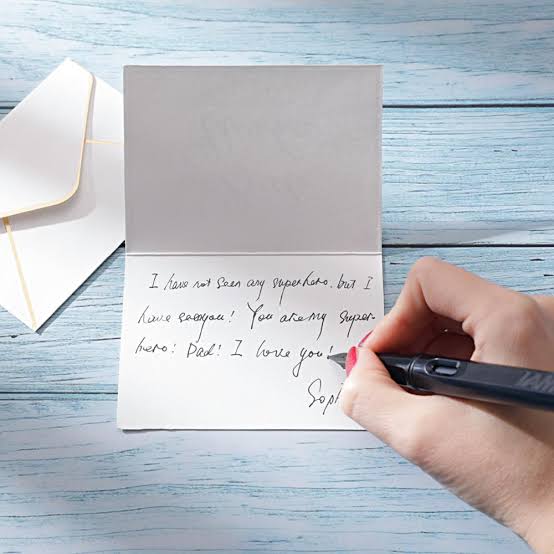 I have not seen any superhero. but I
have seen you! You are my super-
hero! Dad! I love you!
Soph
LAMY